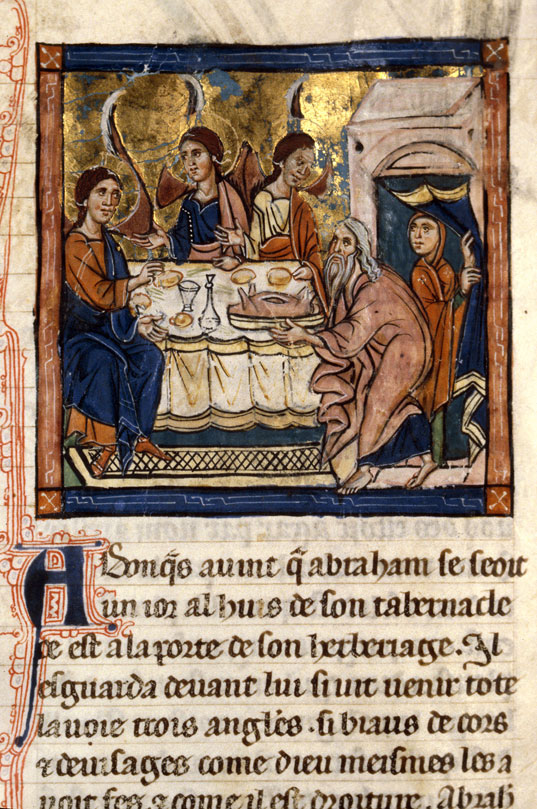 Adonq̃s auint q̃ abraham se seoit
un ior al huis de son tabernacle
ce est a la porte de son herberiage. Il
esguarda deuant lui si uit uenir tote
la uoie trois angles. si biaus de cors
& de uisages come dieu meismes les a
uoit fes & come il est droiture. Abrah